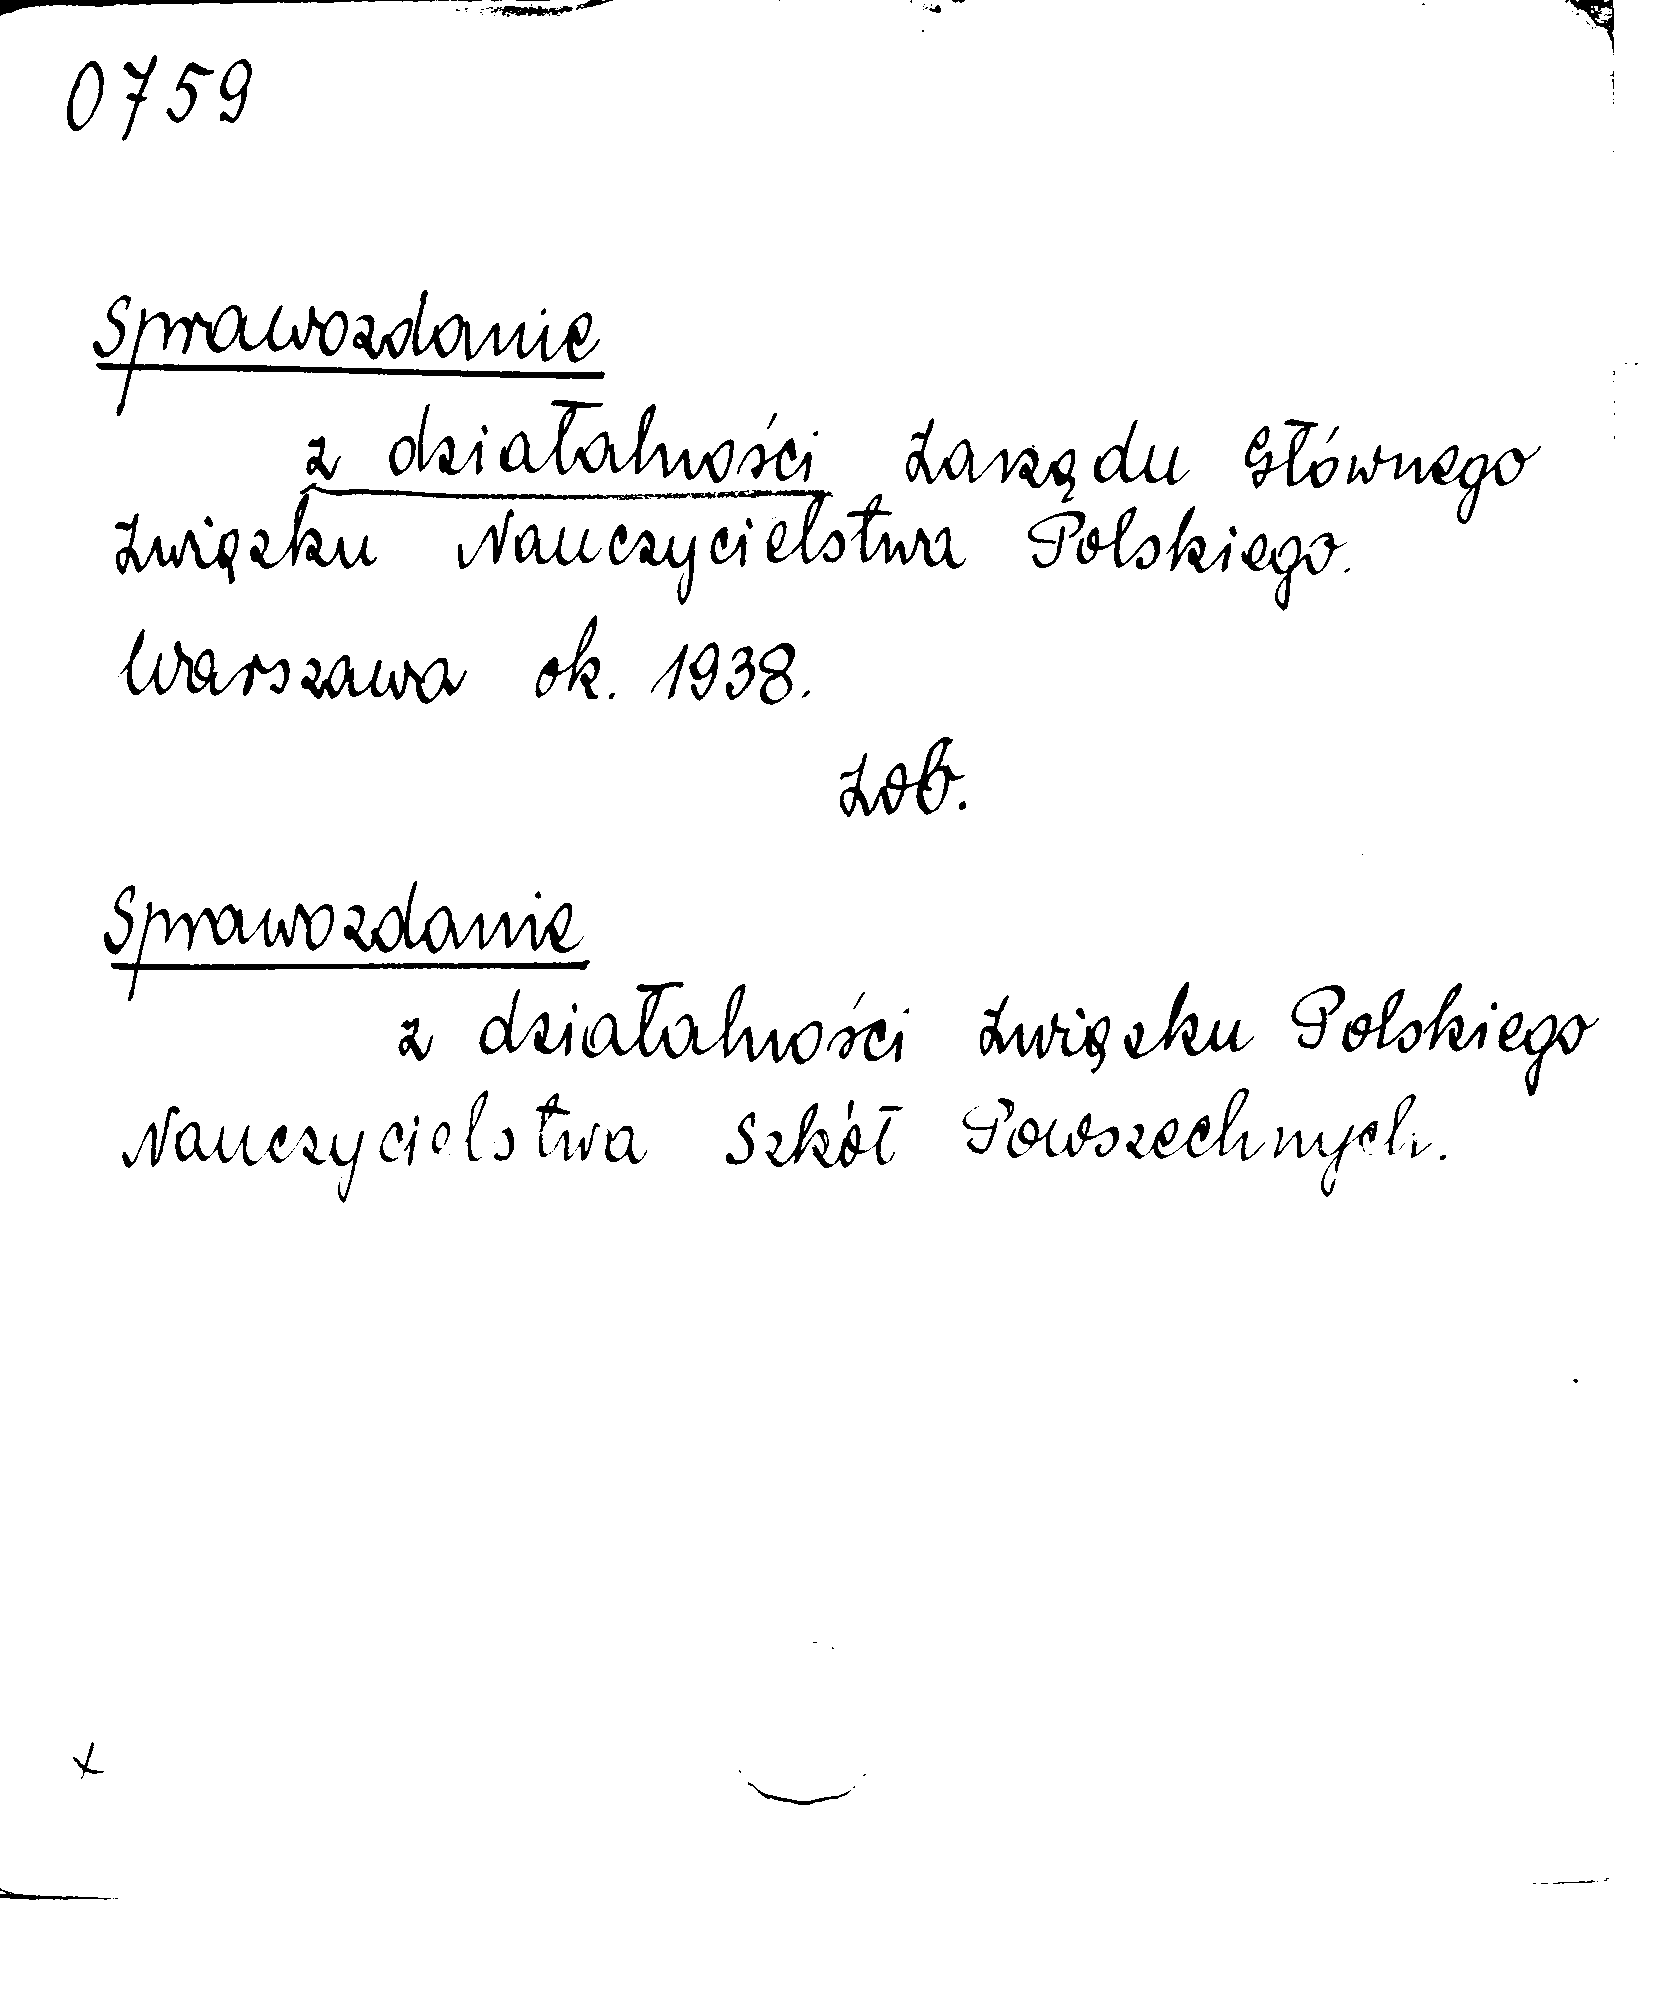 0759
Sprawozdanie
z działalności Zarządu Głównego
Związku Nauczycielstwa Polskiego.
Warszawa ok. 1938.
Zob.
Sprawozdanie
z działalności Związku Polskiego
Nauczycielstwa Szkół Powszechnych.
x